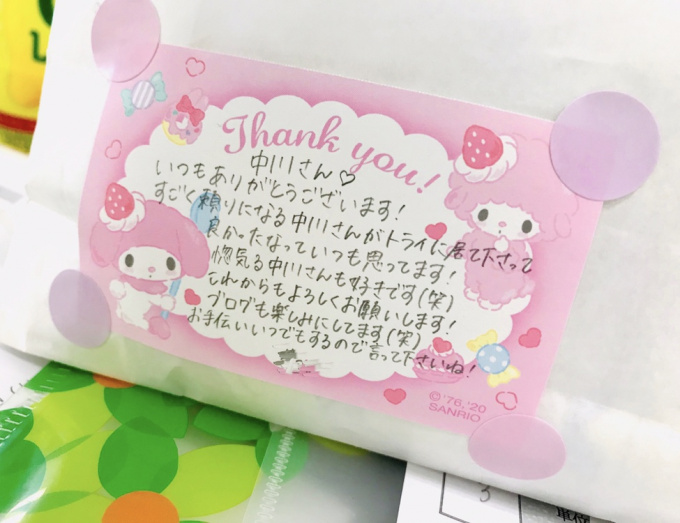 Thank you!
中川さん♡
いつもありがとうございます!
すごく頼りになる中川さんがトライに居て下さって
良かったなっていつも思ってます!
惚気る中川さんも好きです(笑)
これからもよろしくお願いします!
ブログも楽しみにしてます(笑)
お手伝いいつでもするので言って下さいね!
©'76,'20
SANRIO
3
単位